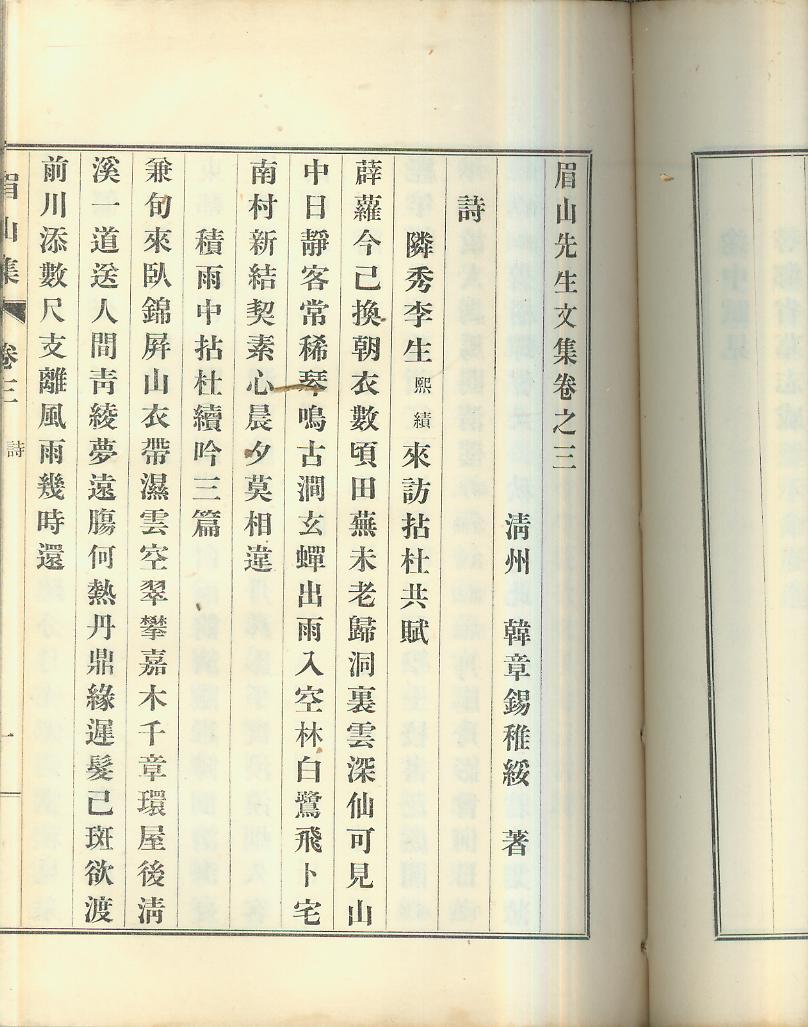 眉山先生文集卷之三
淸州 韓章錫稚綏 著
詩
隣秀李生熙績來訪拈杜共賦
薜蘿今已換朝衣數頃田蕪未老歸洞裏雲深仙可見山
中日靜客常稀琴鳴古澗玄蟬出雨入空林白鷺飛卜宅
南村新結契素心晨夕莫相違
積雨中拈杜續吟三篇
兼旬來臥錦屛山衣帶濕雲空翠攀嘉木千章環屋後淸
溪一道送人間靑綾夢遠膓何熱丹鼎緣遲髮已斑欲渡
前川添數尺支離風雨幾時還
眉山集 卷三 詩 一